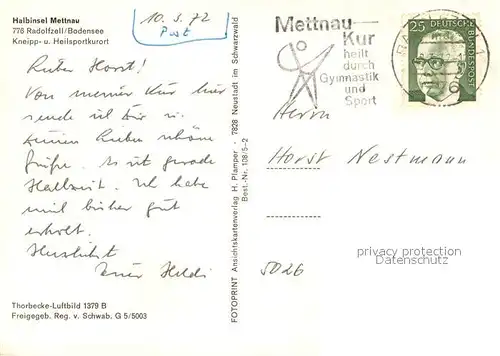 Halbinsel Mettnau
776 Radolfzell/Bodensee
Kneipp- u. Heilsportkurort
10. 5. 72
Post
Mettnau
Kur
heilt
durch
Gymnastik
und
Sport
25 DEUTSCHE BUNDESPOST
Lieber Horst!
Von meiner Kur hier
sende ich Dir u.
Deinen Lieben schöne
Grüße. Es ist gerade
Halbzeit. Ich habe
mich bisher gut
erholt.
Herzlichst
Heldi
Herrn
Horst Nestmann
5026
privacy protection
FOTOPRINT Ansichtskartenverlag H. Plamper · 7828 Neustadt im Schwarzwald
Best.-Nr. 108/5-2
Thorbecke-Luftbild 1379 B
Freigegeb. Reg. v. Schwab. G 5/5003